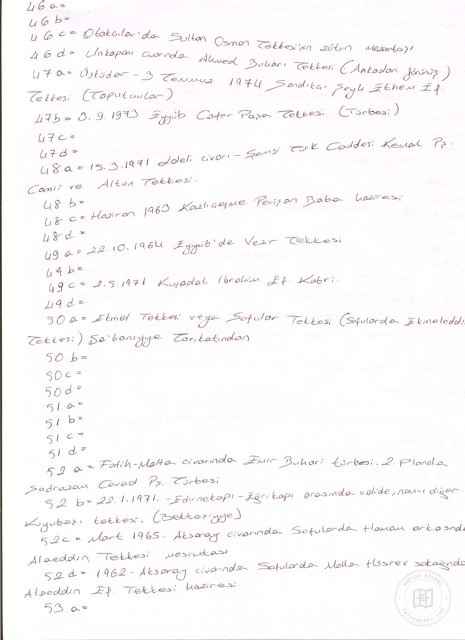 46 a=
46 b=
46 c= Otakcılar'da Sultan Osman Tekkesi'nin zütun mezartaşı
46 d= Unkapanı civarında Ahmed Buhari Tekkesi (Arkadan görünüş)
47 a= Üsküdar- 3 Temmuz 1974 Sandıkçı Şeyh Ethem Ef.
Tekkesi (Toputaular)
47 b= 3.9.1973 Eyyüb Cafer Paşa Tekkesi (Türbesi)
47 c=
47 d=
48 a= 15.3.1971 civarı- Türk Caddesi Kemal Pş.
Camii ve Altun Tekkesi.
48 b=
48 c= Haziran 1963 Kazlıçeşme Perişan Baba haziresi
48 d=
49 a= 22.10.1964 Eyyub'de Vezir Tekkesi
49 b=
49 c= 2.5.1971 Kuşadalı İbrahim Ef. Kabri.
49 d=
50 a= Ekmel Tekkesi veya Sofular Tekkesi (Sofularda Ekmeleddi
Tekkesi) Şa'baniyye Tarikatından
50 b=
50 c=
50 d=
51 a=
51 b=
51 c=
51 d=
52 a= Fatih-Malta civarında Emir Buhari türbesi. 2. Planda
Sadrazam Cevad Pş. Türbesi
52 b= 22.1.1971. -Edirnekapı- Eğrikapı arasında valide, nam-ı diğer
Kuyubaşı tekkesi. (Bektaşiyye)
52 c= Mart 1965. Aksaray civarında Sofularda Hamam arkasında
Alaeddin Tekkesi meşrutası
52 d= 1962- Aksaray civarında Sofularda Molla Hüsrev sokağında
Alaeddin Ef. Tekkesi haziresi
53 a=